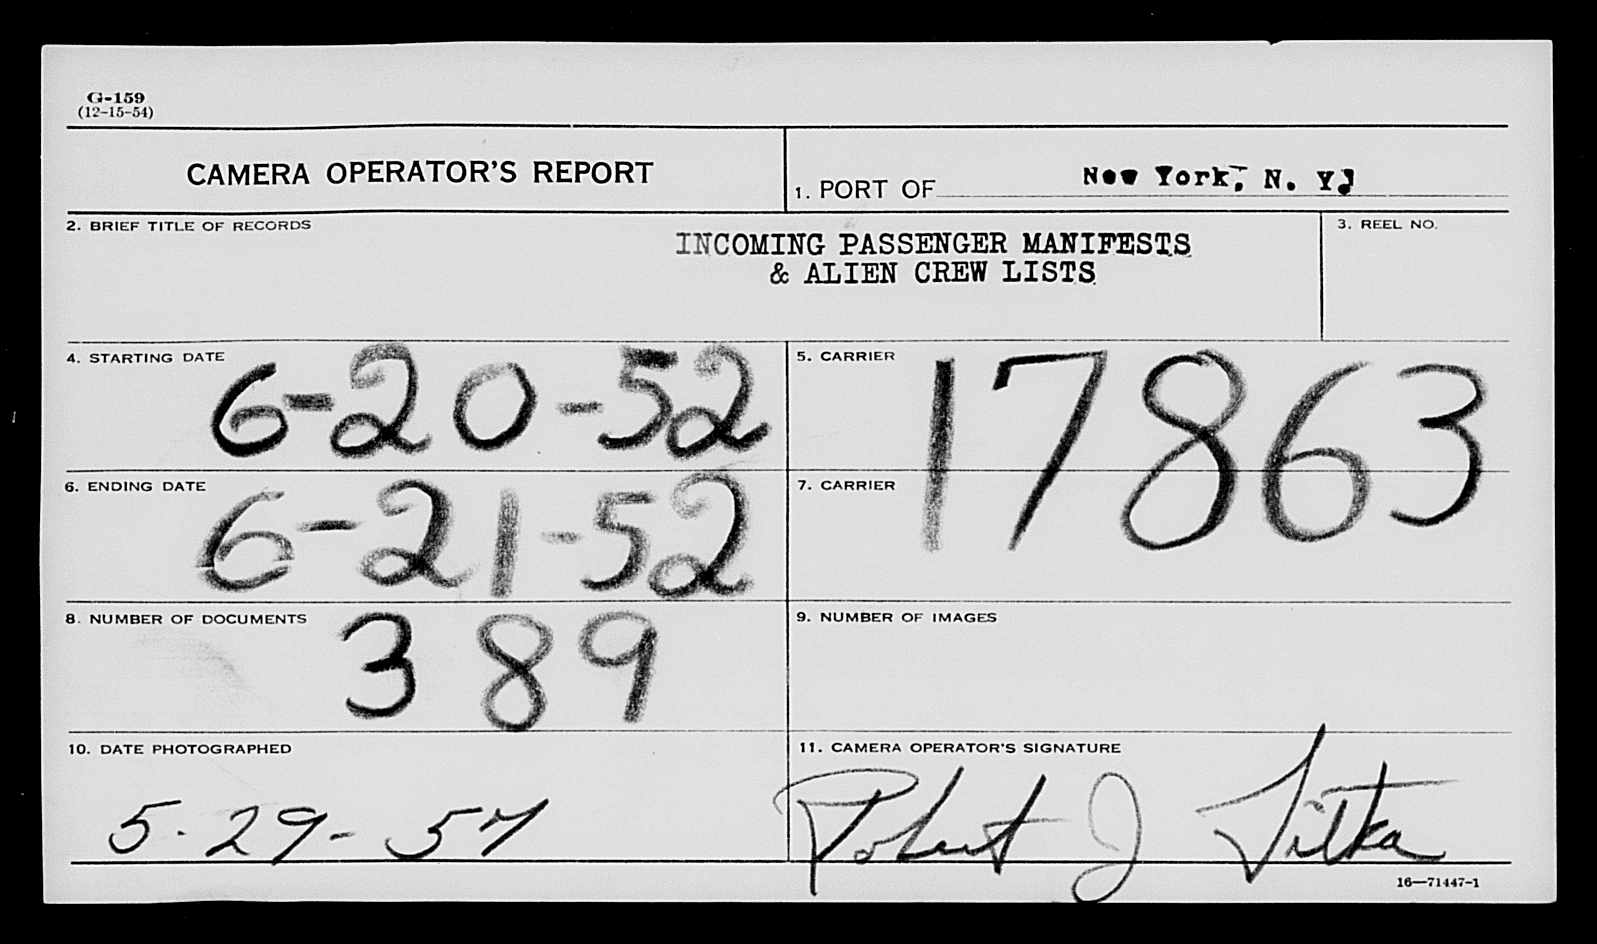 G-159
(12-15-54)
CAMERA OPERATOR'S REPORT
1. PORT OF New York, N. Y.
2. BRIEF TITLE OF RECORDS
INCOMING PASSENGER MANIFESTS
& ALIEN CREW LISTS
3. REEL NO.
4. STARTING DATE 6-20-52
5. CARRIER 17863
6. ENDING DATE 6-21-52
7. CARRIER
8. NUMBER OF DOCUMENTS 389
9. NUMBER OF IMAGES
10. DATE PHOTOGRAPHED
5-29-57
11. CAMERA OPERATOR'S SIGNATURE
Robert J
16—71447-1